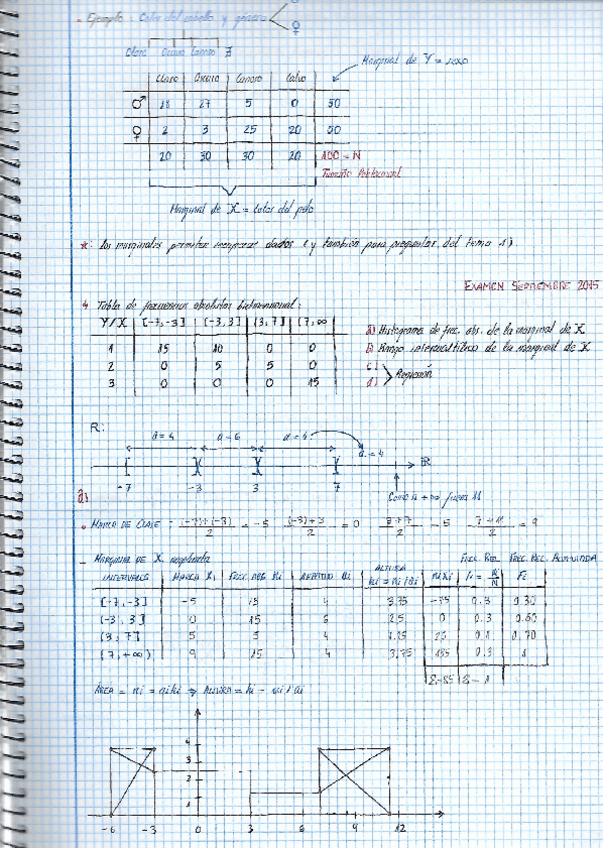 - Ejemplo: Color del cabello y género ♂ ♀
Claro Oscuro Canoso
Marginal de Y = sexo
Claro Oscuro Canoso Calvo
♂ 18 27 5 0 50
♀ 2 3 25 20 50
20 30 30 20 100 = N
Tamaño Poblacional
Marginal de X = Color del pelo
*: Los marginales permiten recuperar datos (y también para preguntas del tema 1).
EXAMEN SEPTIEMBRE 2015
4 Tabla de frecuencias absolutas bidimensional:
Y/X [-7,-3] (-3,3] (3,7] (7,∞
1 15 10 0 0
2 0 5 5 0
3 0 0 0 15
a) Histograma de frec. abs. de la marginal de X
b) Rango intercuartílico de la marginal de X
c)
d) Regresión
R:
a=4 a=6 a=4 a=4
-7 -3 3 7 R
Como a +∞ fuera 11
a)
• MARCA DE CLASE: (-7)+(-3)/2 = -5 (-3)+3/2 = 0 3+7/2 = 5 7+11/2 = 9
- MARGINAL DE X
INTERVALOS MARCA Xi FREC. ABS Ni AMPLITUD ai ALTURA hi = ni/ai niXi FREC. REL fi = ni/N FREC. REC. ACUMULADA Fi
[-7,-3] -5 15 4 3.75 -75 0.3 0.30
(-3,3] 0 15 6 2.5 0 0.3 0.60
(3,7] 5 5 4 1.25 25 0.1 0.70
(7,+∞) 9 15 4 3.75 135 0.3 1
Σ=85 Σ=1
ÁREA = ni = ai·hi ⇒ ALTURA = hi = ni/ai
4
3
2
1
-6 -3 0 3 6 9 12